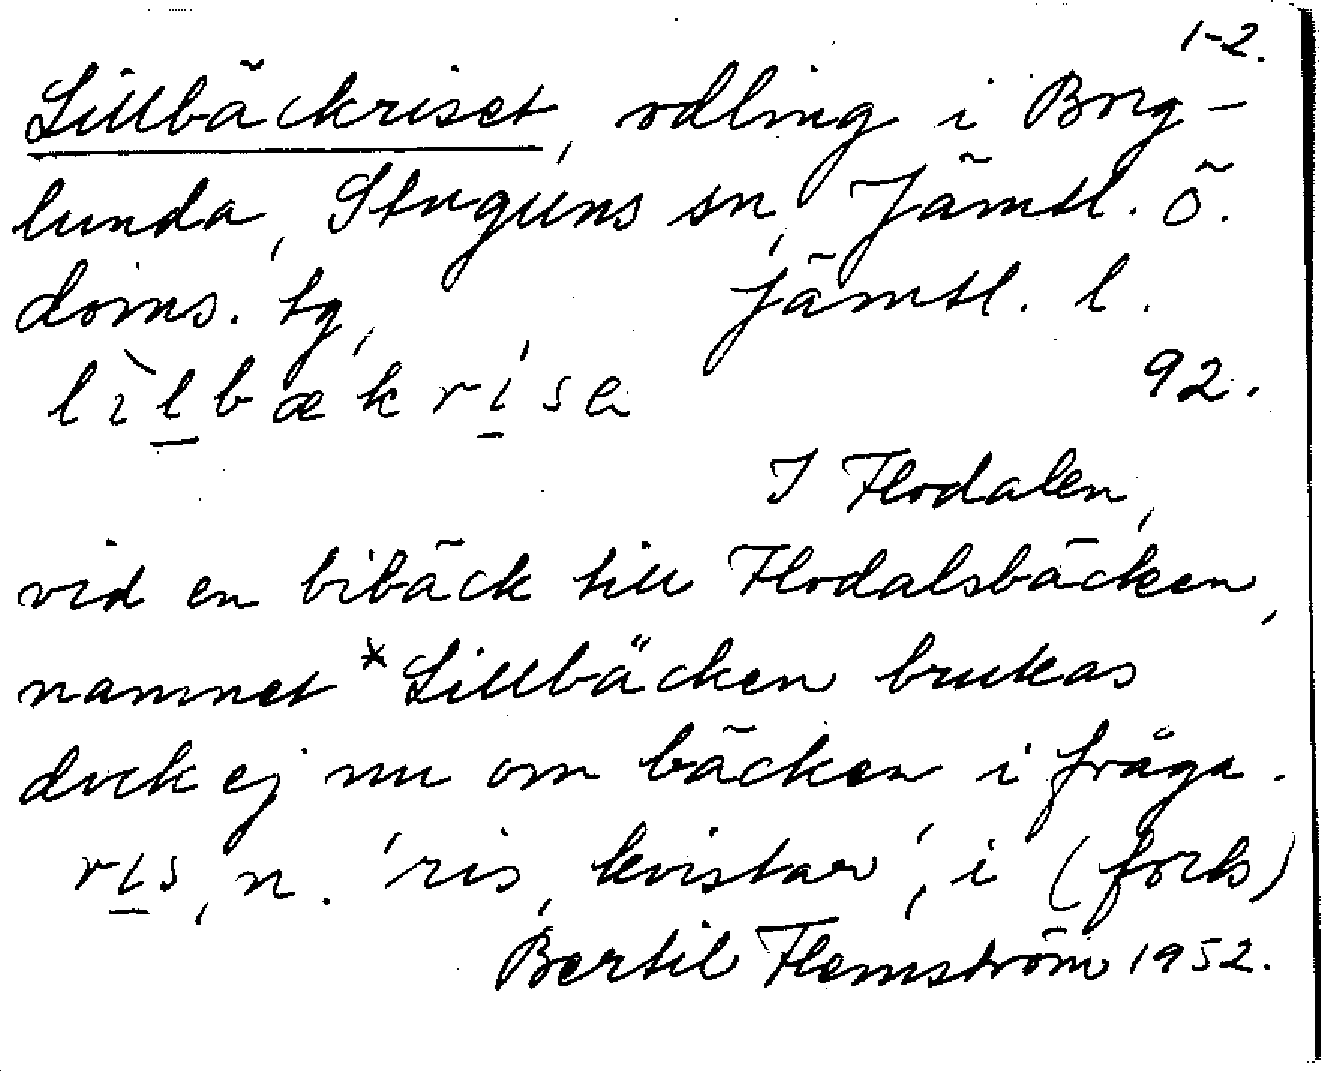 1-2.
Lillbäckriset, odling i Borg-
lunda, Stuguns sn, Jämtl. ö.
doms. tg, Jämtl. l.
lìlbækrísa 92.
I Flodalen,
vid en bibäck till Flodalsbäcken,
namnet *Lillbäcken brukas
dock ej nu om bäcken i fråga.
ris, n. 'ris, kvistar', i (forts)
Bertil Flemström 1952.